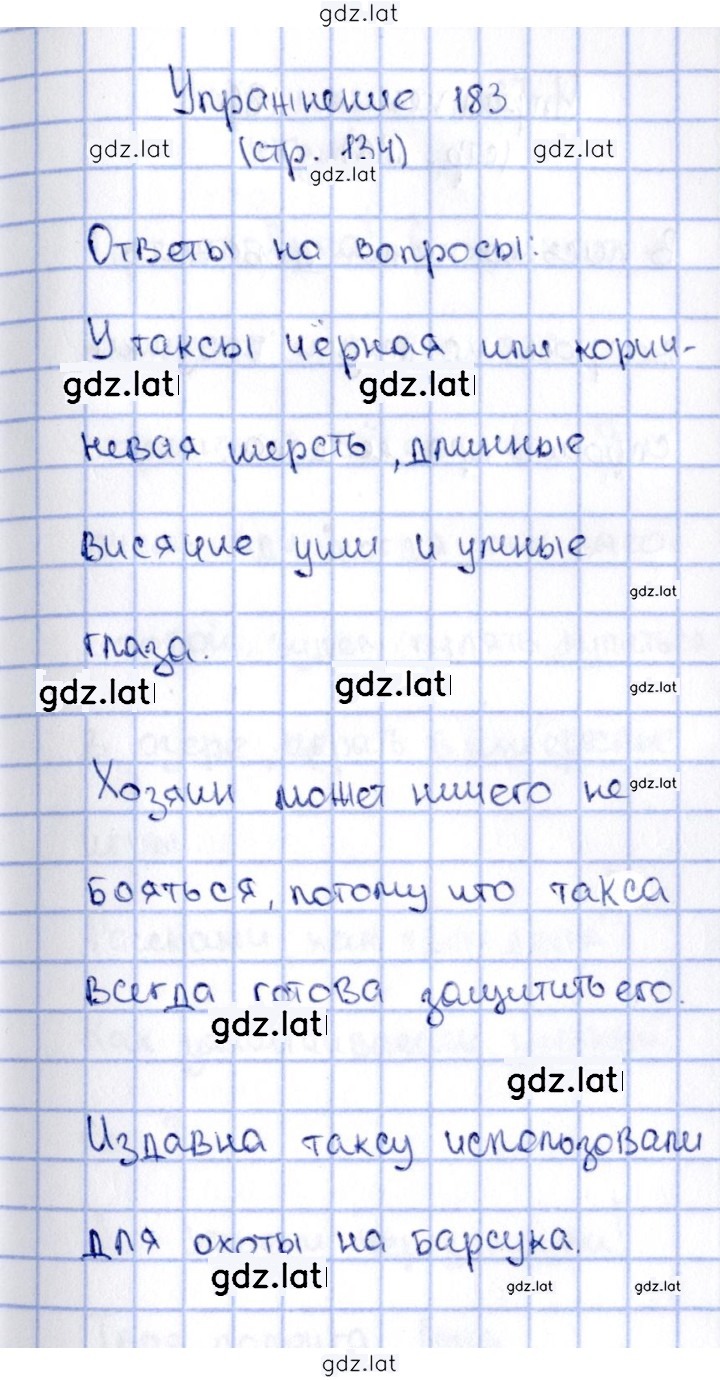 gdz.lat
Упражнение 183
gdz.lat (стр. 134) gdz.lat
gdz.lat
Ответы на вопросы:
У таксы чёрная или корич-
gdz.lat gdz.lat
невая шерсть, длинные
висячие уши и умные
gdz.lat
глаза.
gdz.lat gdz.lat gdz.lat
Хозяин может ничего не gdz.lat
бояться, потому что такса
всегда готова защитить его.
gdz.lat
gdz.lat
Издавна таксу использовали
для охоты на барсука.
gdz.lat gdz.lat gdz.lat
gdz.lat